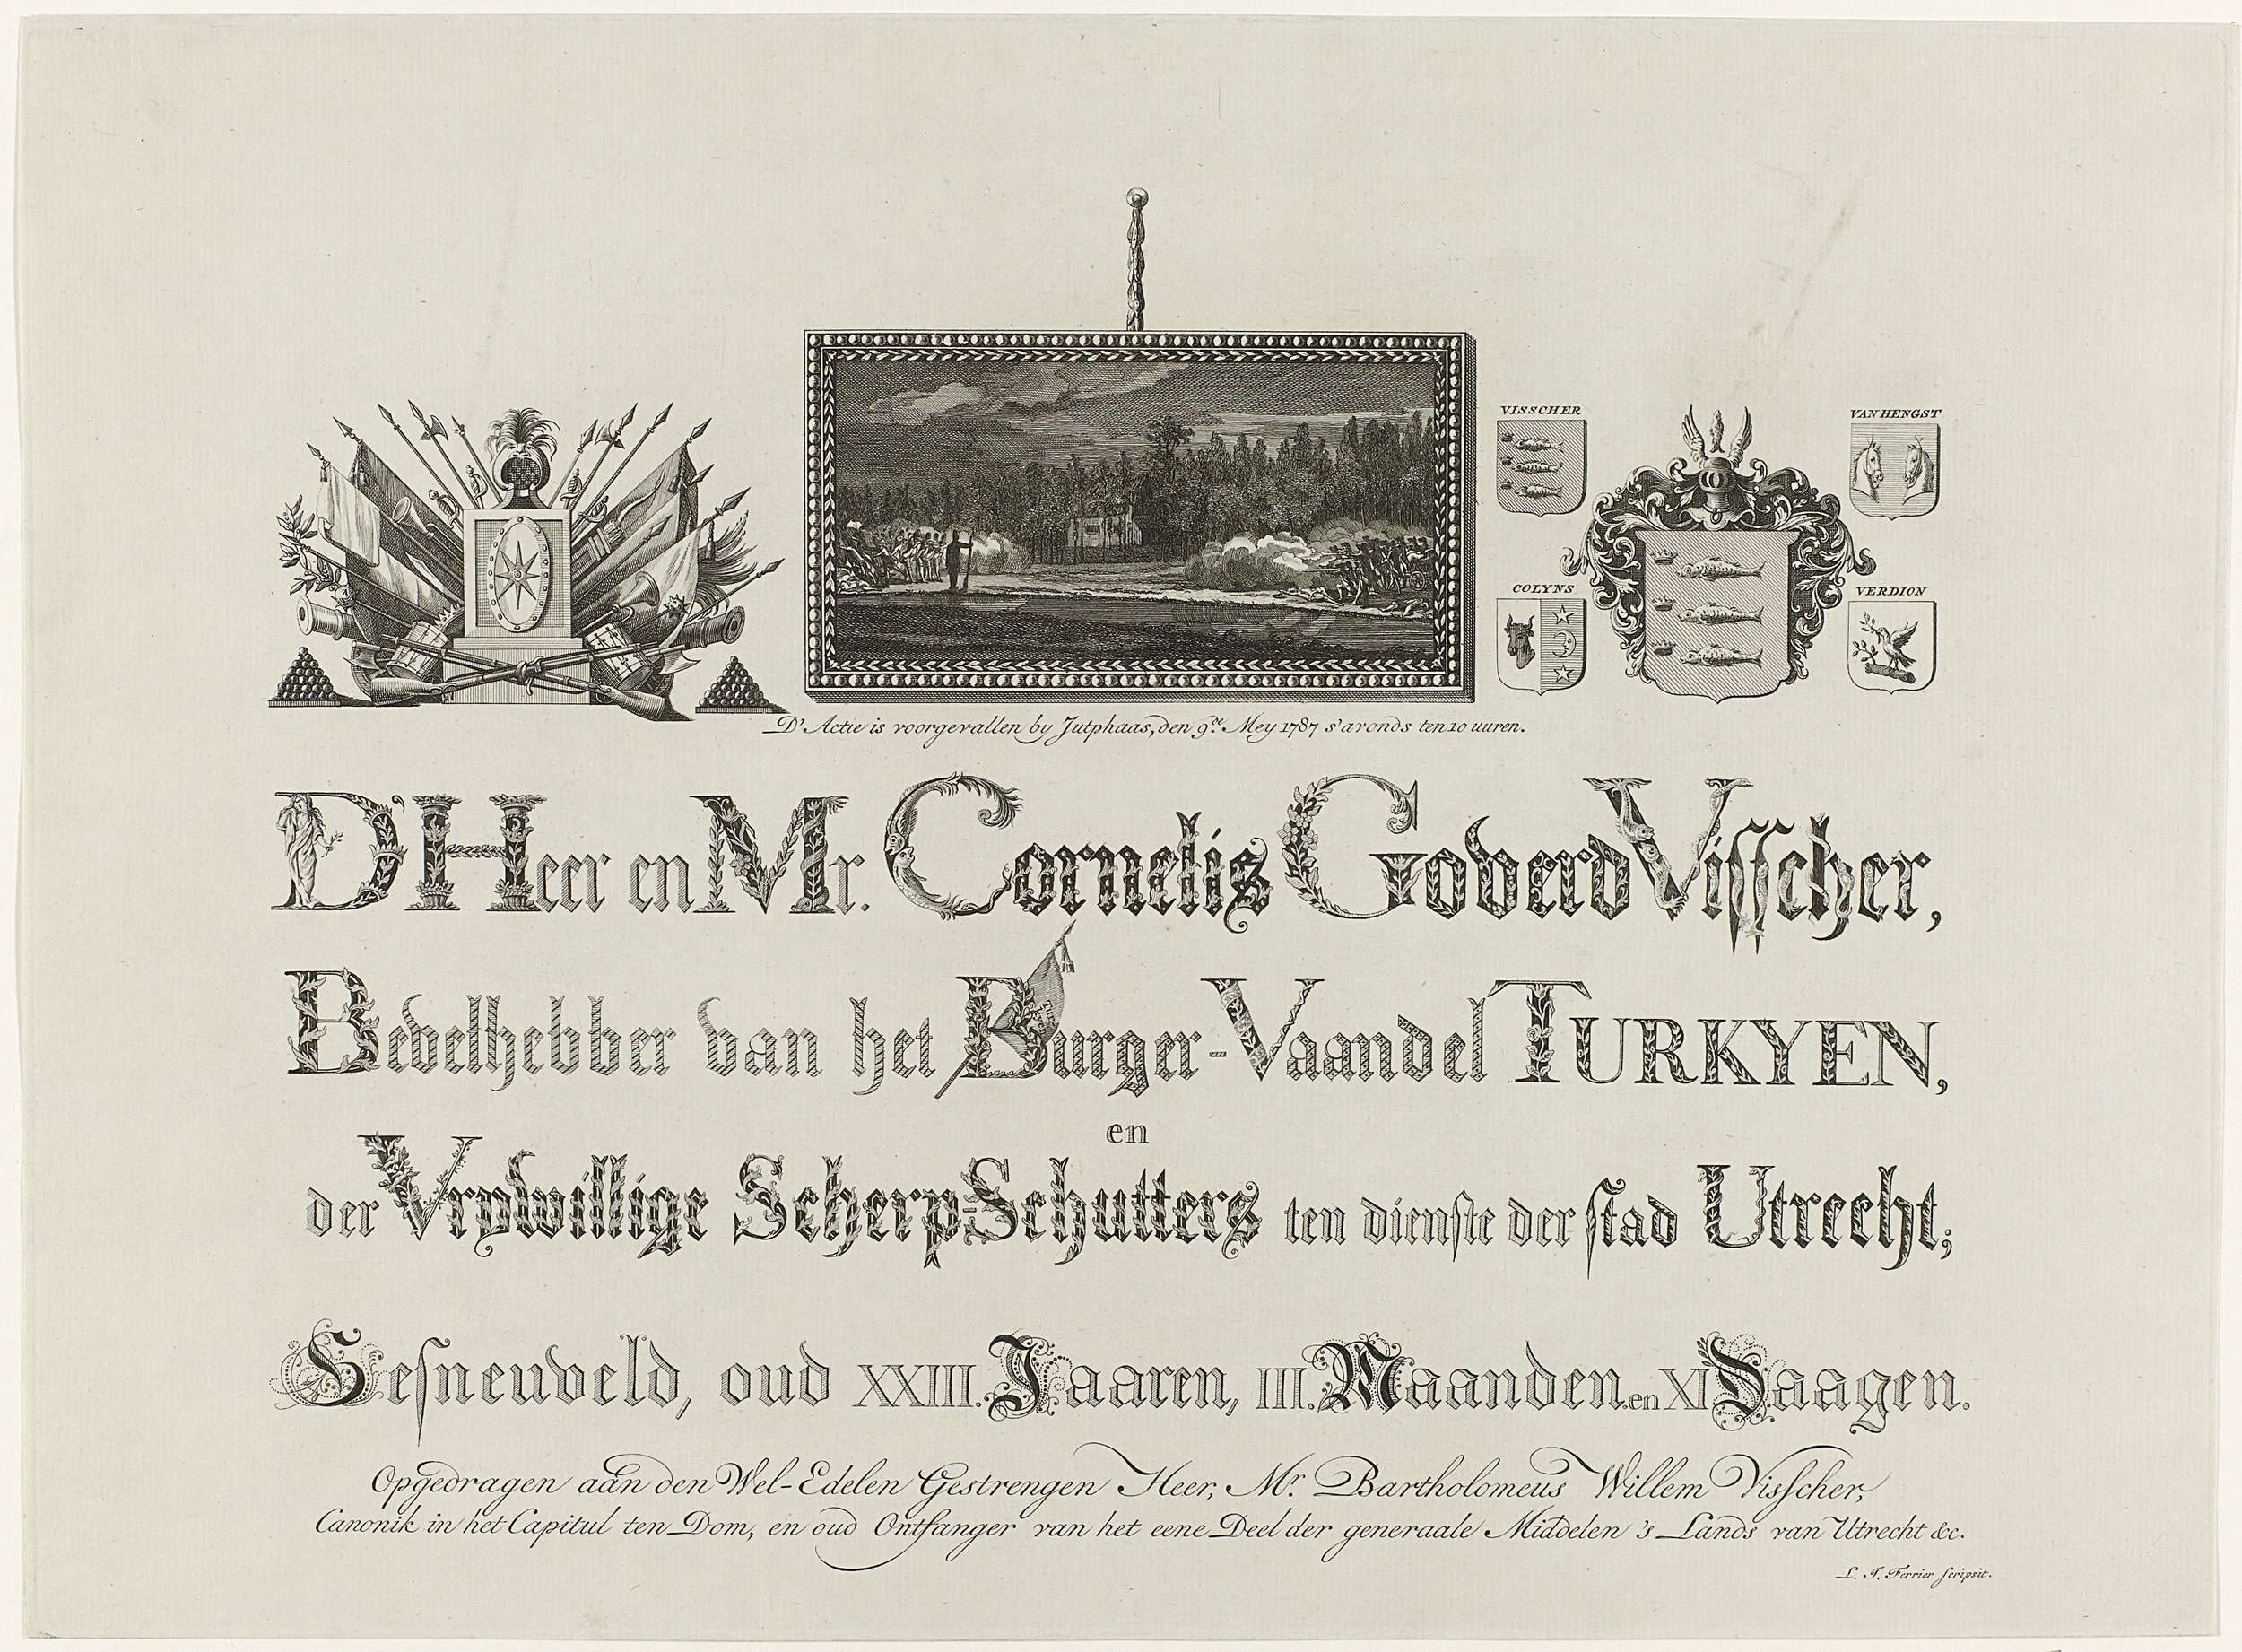 VISSCHER
VAN HENGST
COLYNS
VERDION
D' Actie is voorgevallen by Jutphaas, den 9.de Mey 1787 s'avonds ten 10 uuren.
D'Heer en Mr. Cornelis Goverd Viſſcher,
Bevelhebber van het Burger-Vaandel TURKYEN,
en
der Vrywillige Scherp-Schutters ten dienſte der ſtad Utrecht;
Geſneuveld, oud XXIII. Jaaren, III. Maanden en XI Daagen.
Opgedragen aan den Wel-Edelen Gestrengen Heer, Mr. Bartholomeus Willem Visſcher,
Canonik in het Capitul ten Dom, en oud Ontfanger van het eene Deel der generaale Middelen 's Lands van Utrecht &c.
L. J. Ferrier ſcripsit.